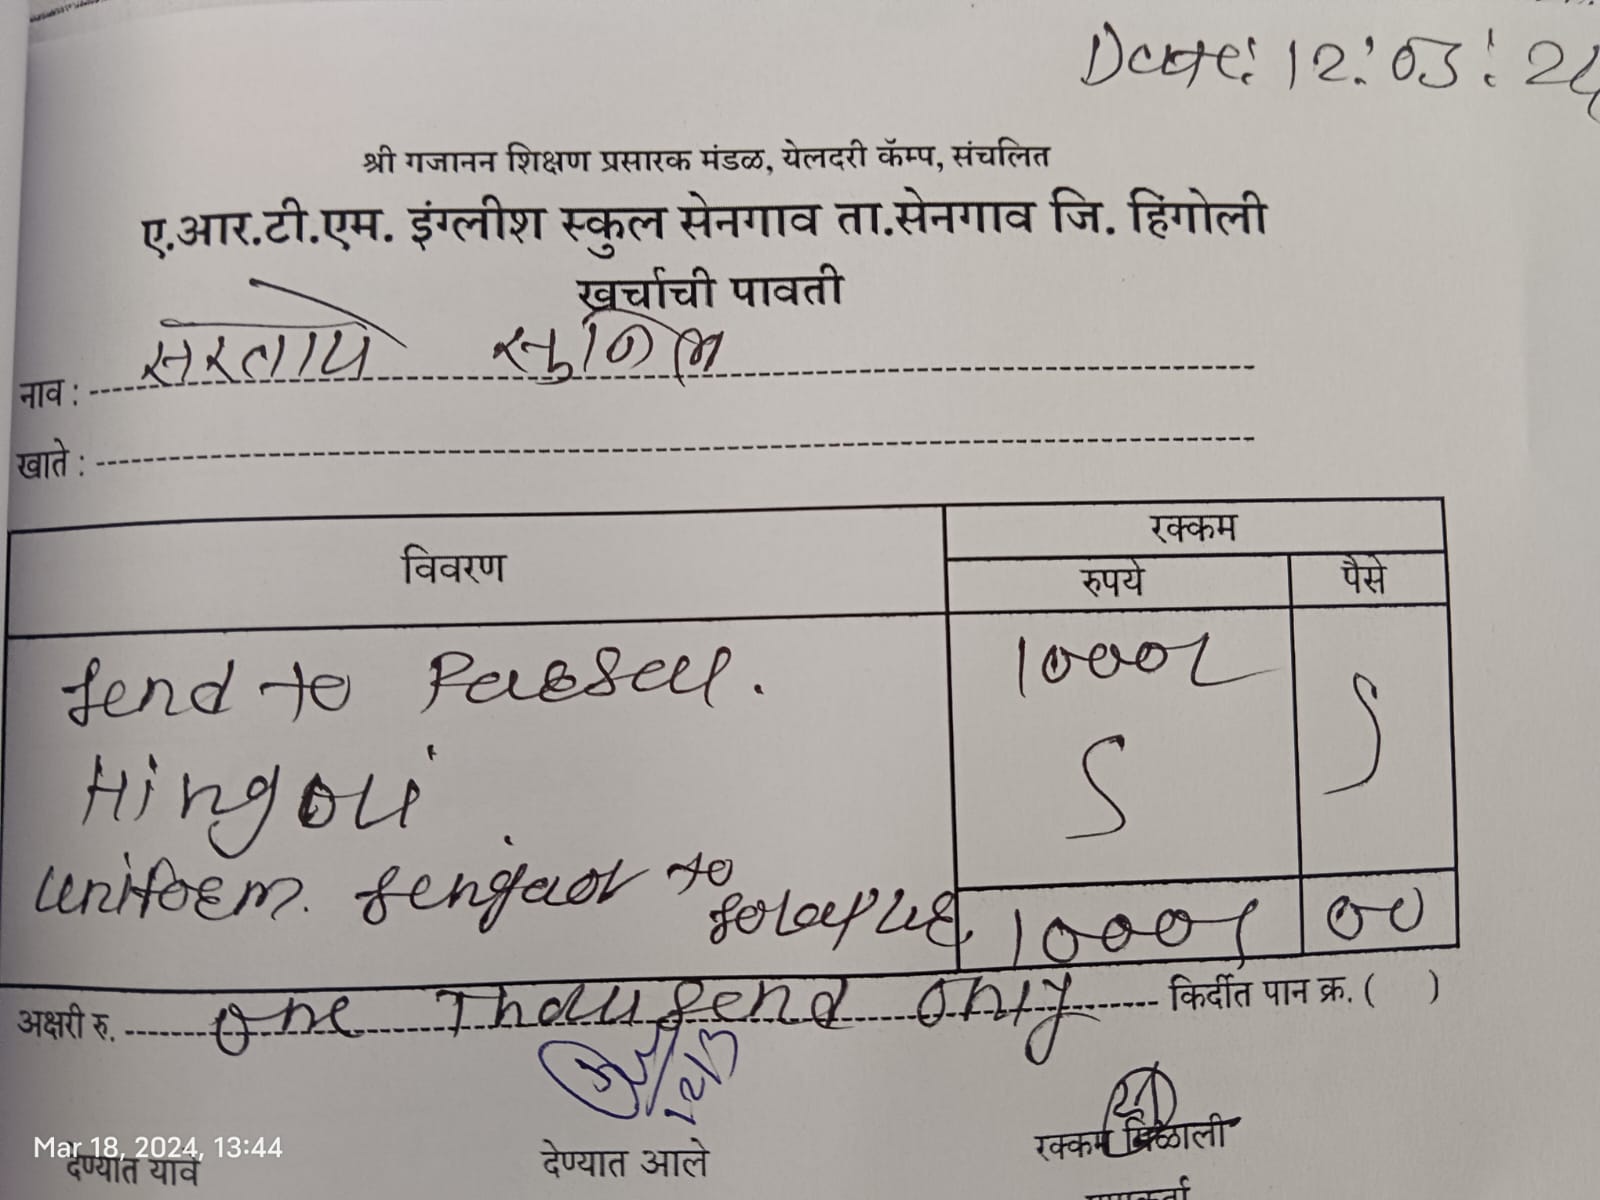 Date: 12:03:24
श्री गजानन शिक्षण प्रसारक मंडळ, येलदरी कॅम्प, संचलित
ए.आर.टी.एम. इंग्लीश स्कुल सेनगाव ता.सेनगाव जि. हिंगोली
खर्चाची पावती
नाव :
खाते :
विवरण रक्कम
रुपये पैसे
Send to 1000/-
Hingoli
uniform. to
1000/- 00
अक्षरी रु. One Thousend Only किर्दीत पान क्र. ( )
Mar 18, 2024, 13:44
देण्यात यावे देण्यात आले रक्कम मिळाली